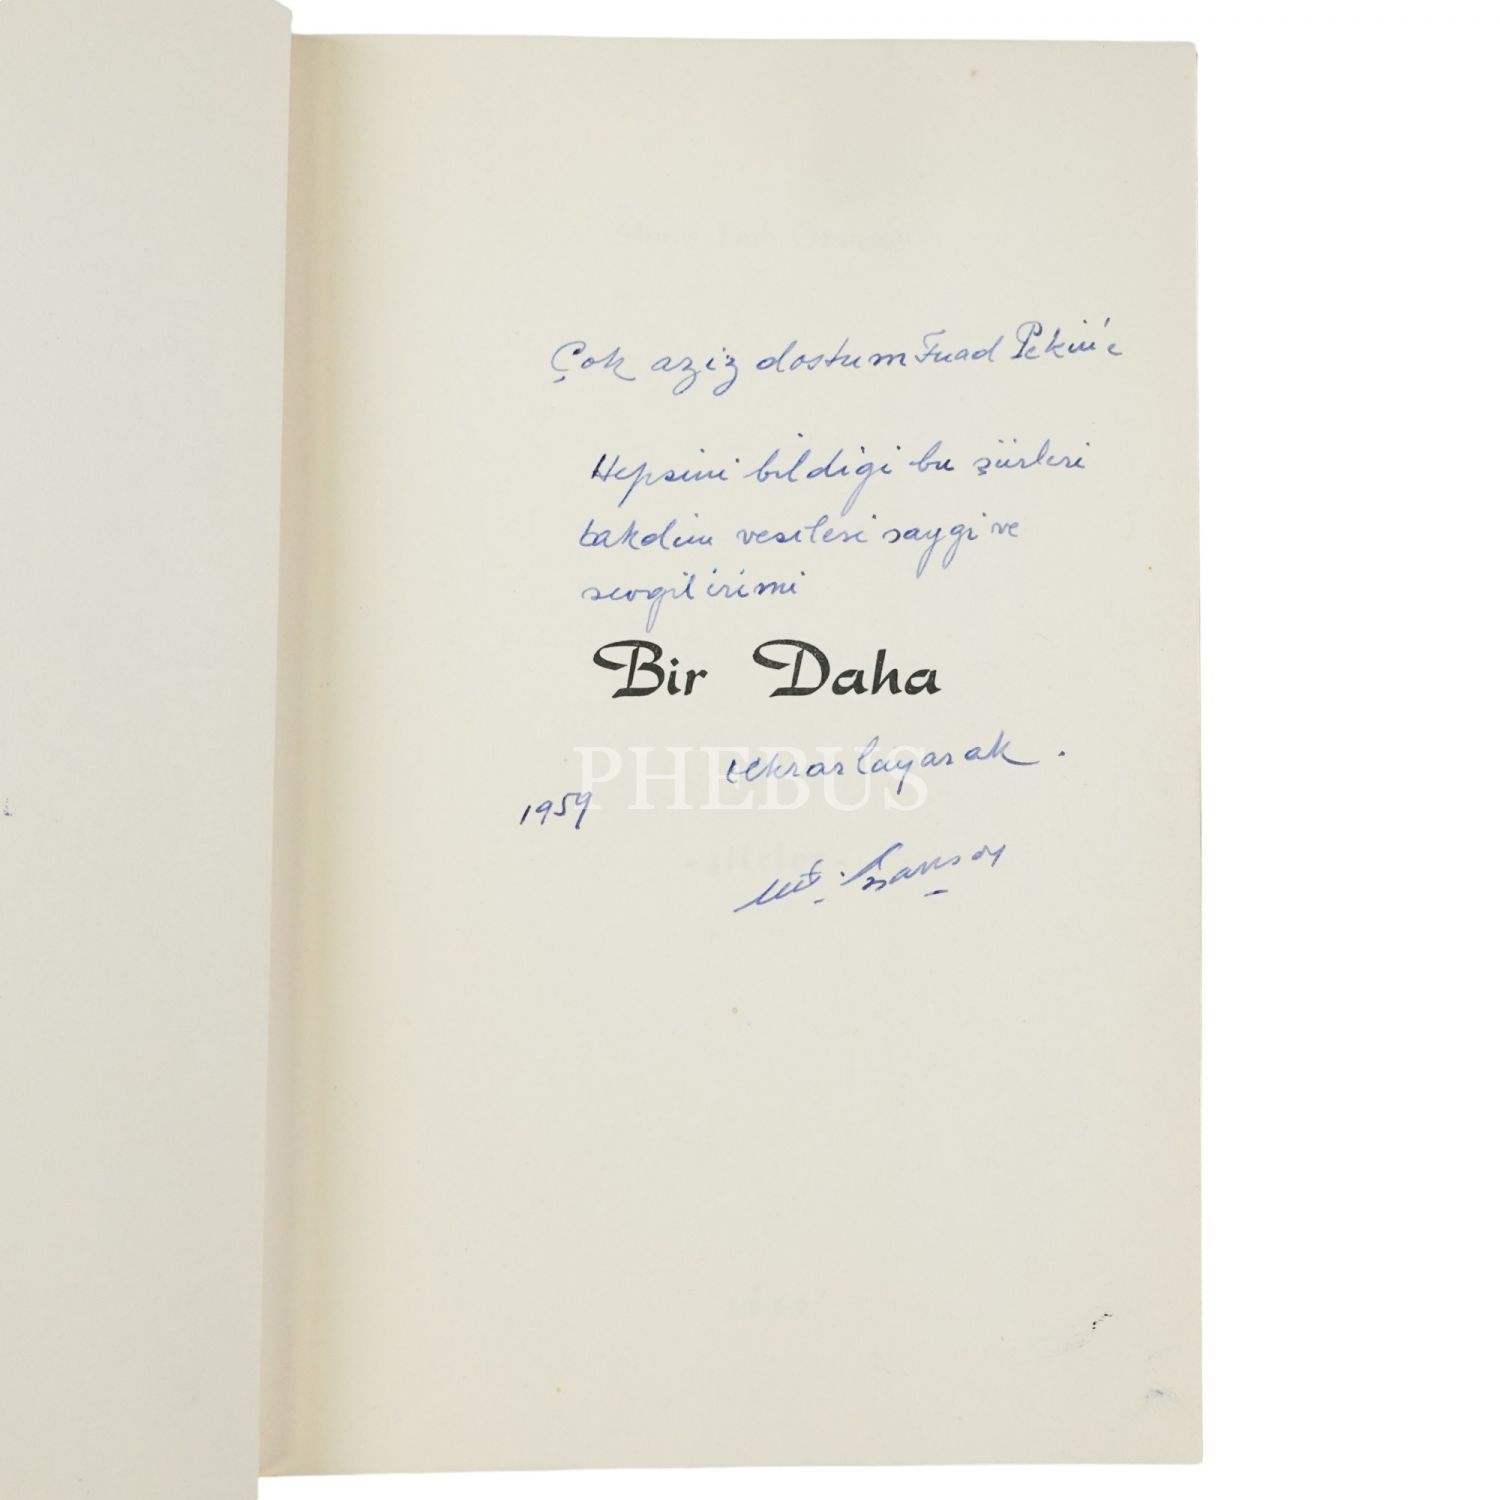 Çok aziz dostum Fuad Pekin'e
Hepsini bildigi bu şiirleri
takdim vesilesi saygi ve
sevgilirimi
Bir Daha
tekrarlayarak.
PHEBUS
1959
M.F. Ozansoy